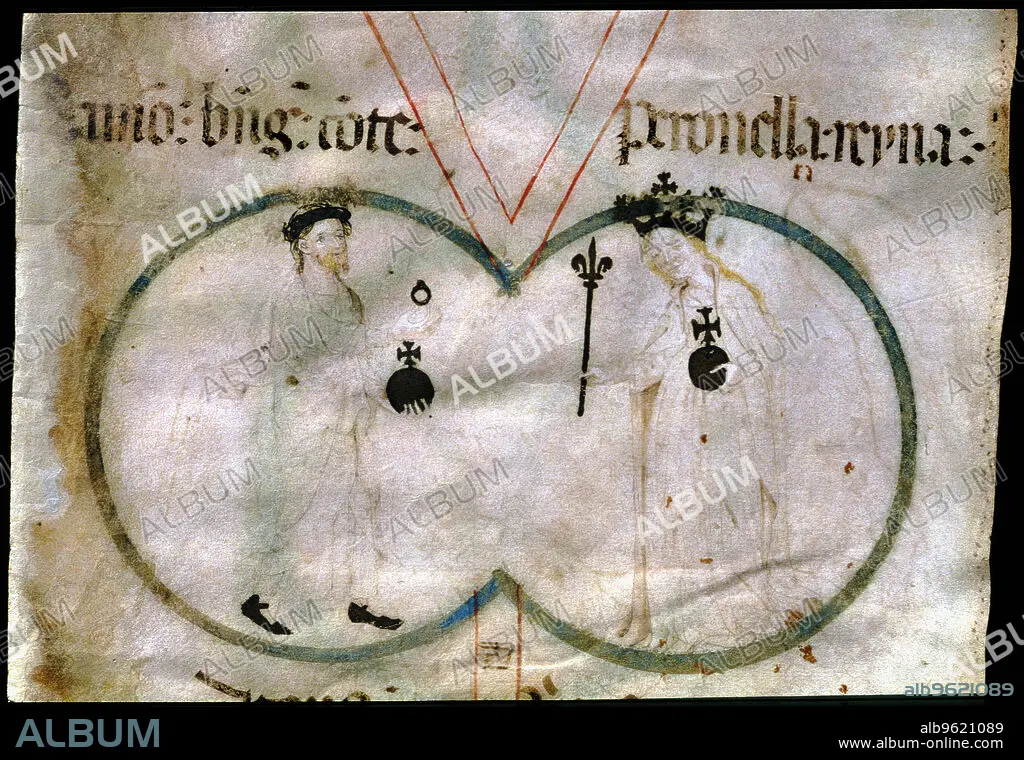 ramō: bn̄g: cōte:
peronella: reyna:
n
ALBUM
alb9621089
ALBUM
alb9621089
www.album-online.com